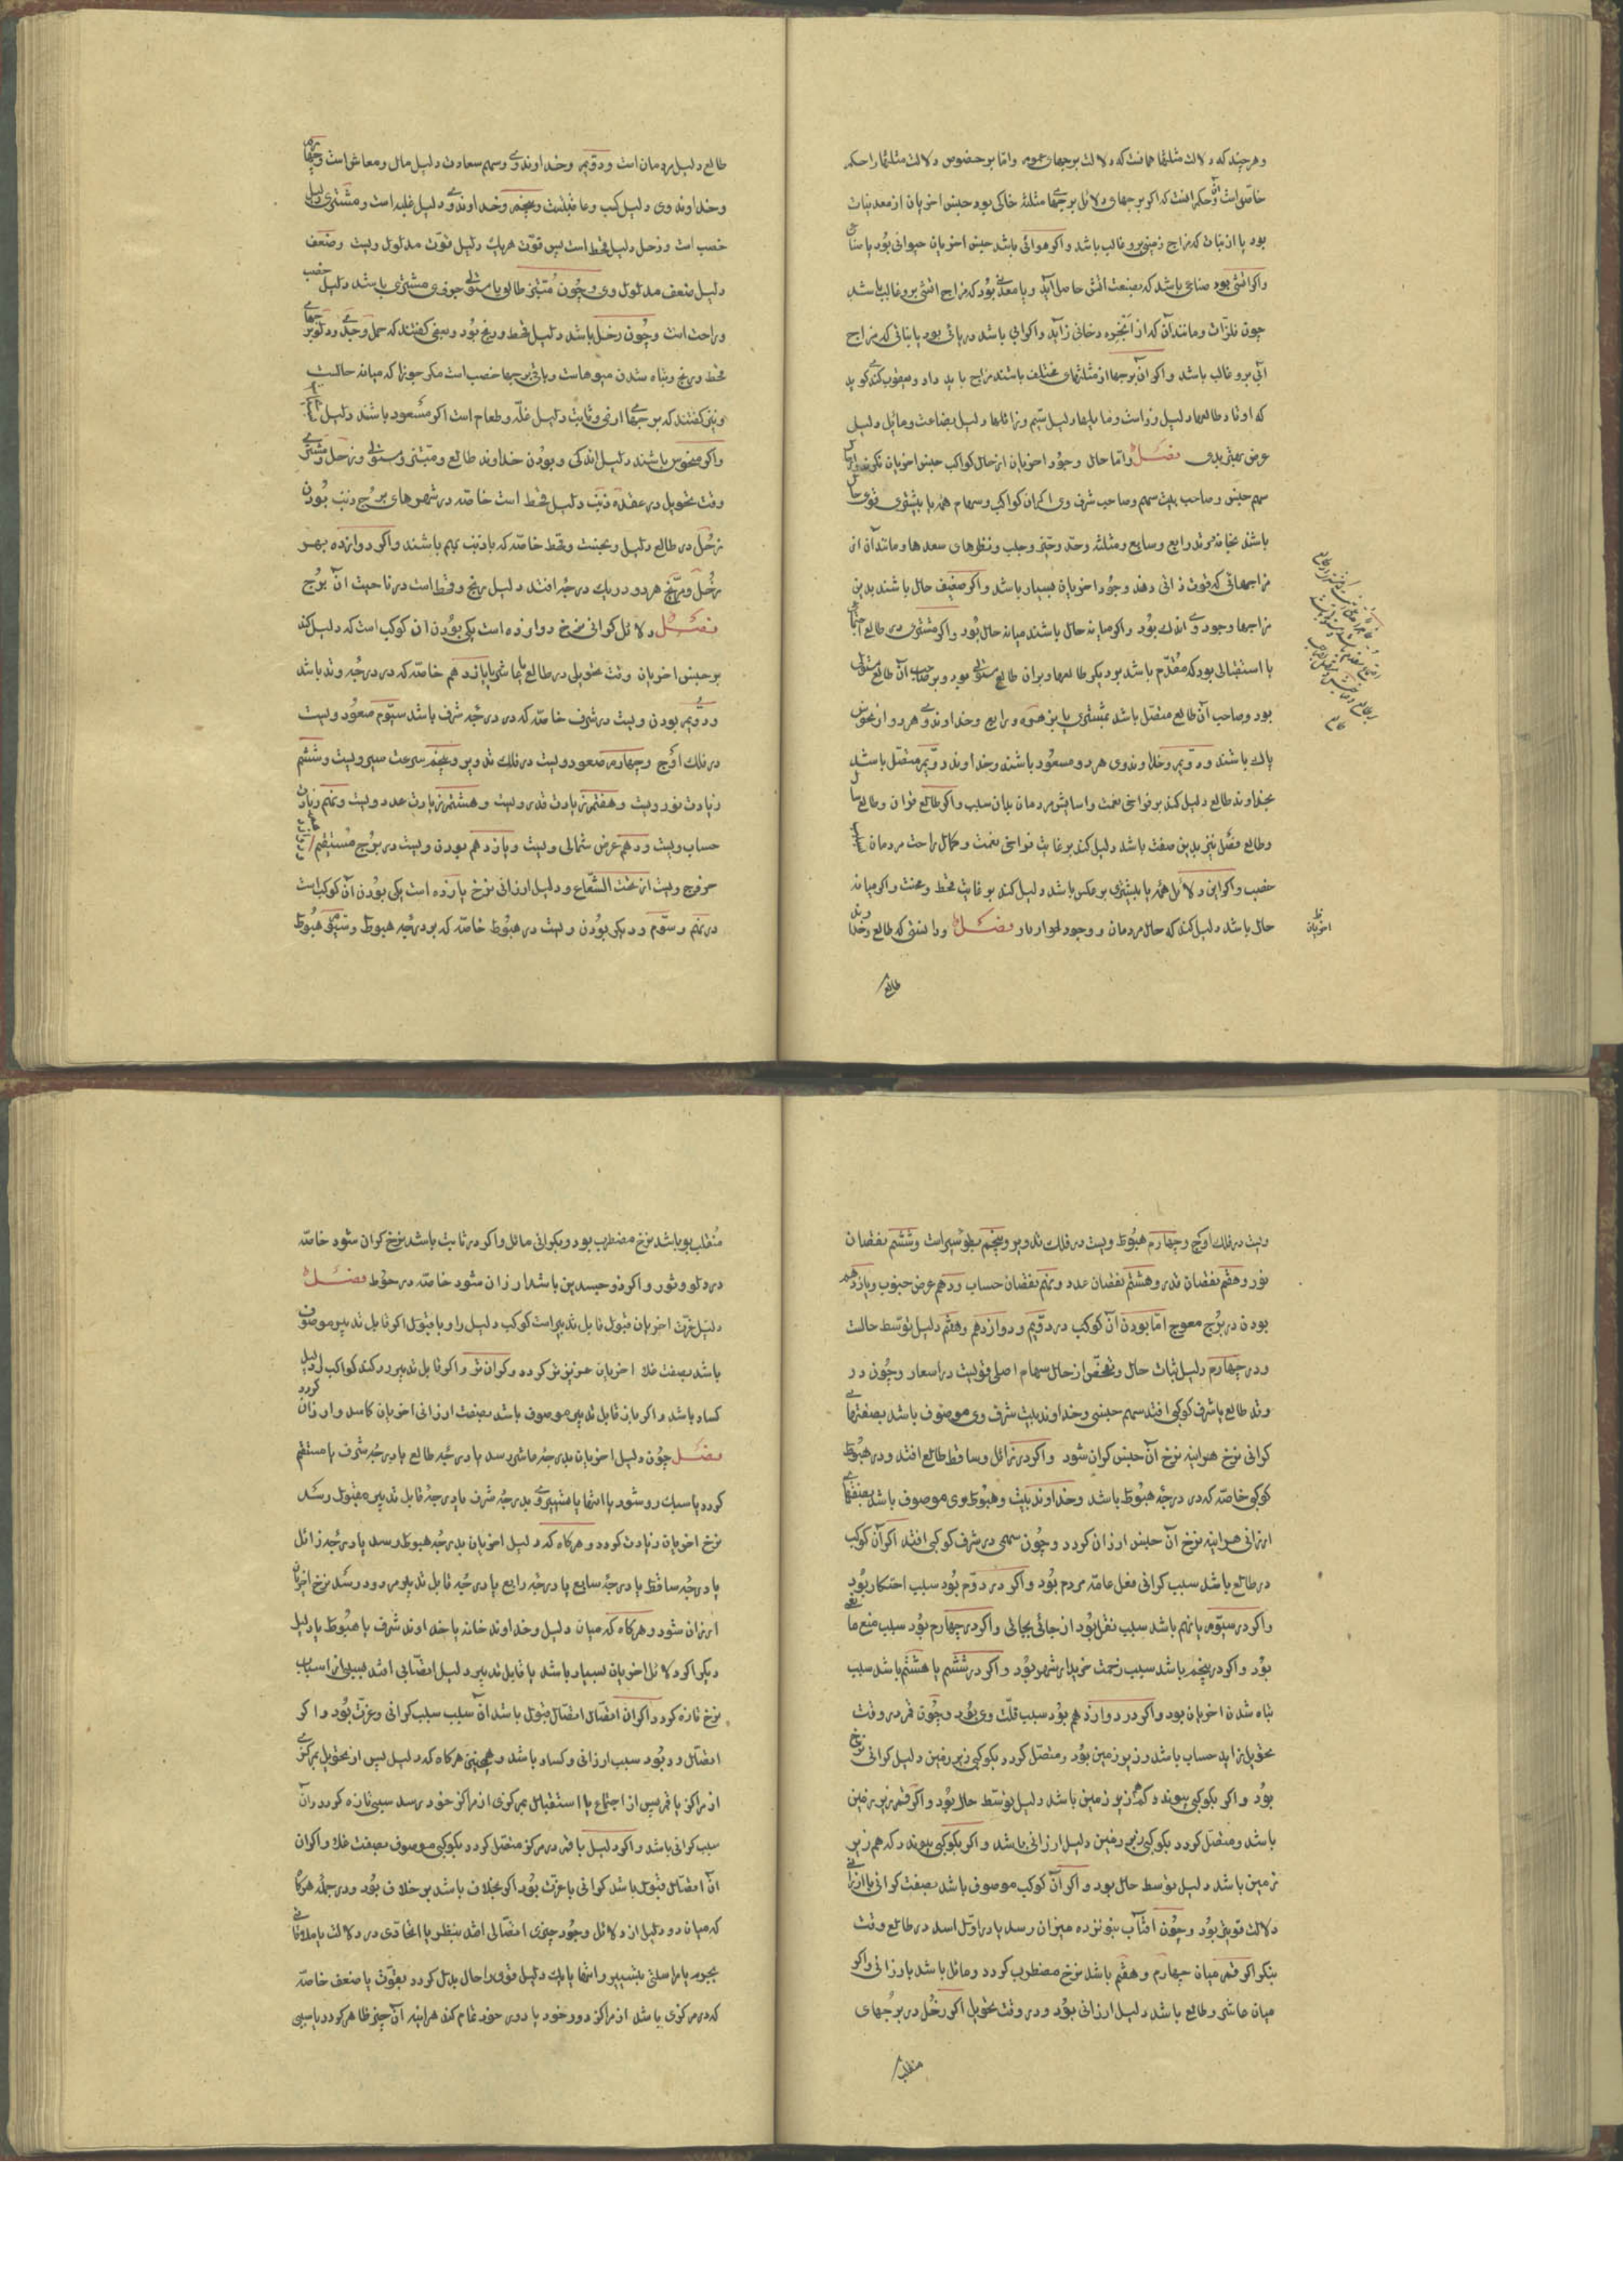 وهرچند که دلالت مثلثها همانست که دلالت برجهای عموم واما بر خصوص دلالت مثلثها را حکم
خاص است وآن حکم آنست که اگر برجهای دلائل برجهای مثلثه خاکی بود جنس اخریان از معدنیات
بود یا از نبات که مزاج زمینی برو غالب باشد واگر هوائی باشد جنس اخریان حیوانی بود یا
واگر آتشی بود صناعی باشد که بصنعت آتش حاصل آید ویا معدنی بود که مزاج آتشی برو غالب باشد
چون فلزات ومانند آن که از ابخره دخانی زاید واگر آبی باشد دریائی بود یا نباتی که مزاج
آبی برو غالب باشد واگر آن برجها از مثلثهای مختلف باشند مزاج باید داد ویعقوب کندی گوید
که اوتاد طالعها دلیل زر است وما یلیها دلیل سیم وزائلها دلیل بضاعت ومائل دلیل
فصل واما حال وجود اخریان از حال کواکب جنس اخریان نگرند
سهم جنس وصاحب بیت سهم وصاحب شرف وی اگر آن کواکب وسهام همه یا بیشتری قوی حال
باشند بخانه وتد رابع وسابع ومثلثه وحد وحیز وجلب ونظرهای سعدها ومانند آن از
مزاجهائی که قوت ذاتی دهد وجود اخریان بسیار باشد واگر ضعیف حال باشند بدین
مزاجها وجود وی اندک بود واگر میانه حال باشند میانه حال بود واگر مشتری در طالع اجتماع
یا استقبالی بود که مقدم باشد بود دیگر طالعها وبران طالع مستولی بود وبر صاحب آن طالع مستولی
بود وصاحب آن طالع متصل باشد بمشتری یا بزهره ورابع وخداوند وی هر دو از نحوس
پاک باشند ودویم وخداوند وی هر دو مسعود باشند وخداوند دویم متصل باشد
بخداوند طالع دلیل کند بر فراخی نعمت وآسایش مردمان بدان سبب واگر طالع قران وطالع سال
وطالع فصل نیز بدین صفت باشد دلیل کند بر غایت فراخی نعمت وکمال راحت مردمان
خصب واگر این دلائل همه یا بیشتری بر عکس باشد دلیل کند بر غایت قحط ومحنت واگر میانه
حال باشد دلیل کند که حال مردمان ووجود فصل وبدانستی که طالع وخداوند
اخریان
طالع
طالع دلیل مردمان است ودویم وخداوند وی وسهم سعادت دلیل مال ومعاش است وچهارم
وخداوند وی دلیل کسب وعاقبتست وپنجم وخداوند وی دلیل غله است ومشتری دلیل
خصب است وزحل دلیل قحط است پس قوت هر یک دلیل قوت مدلول ویست وضعف
دلیل ضعف مدلول وی وچون مبتز طالع یا مستولی جزوی مشتری باشد دلیل خصب
وراحت است وچون زحل باشد دلیل قحط ورنج بود وبعضی گفتند که حمل وجدی ودلو برجهای
قحط ورنج وتباه شدن میوهاست وباقی برجها خصب است مگر جوزا که میانه حالست
ونیز گفتند که برجهای ارضی وثابت دلیل غله وطعام است اگر مسعود باشند دلیل
واگر منحوس باشند دلیل اندکی وبودن خداوند طالع ومبتز ومستولی وزحل ومشتری
وقت تحویل در عقده ذنب دلیل قحط است خاصه در شهرهای برج ذنب بودن
زحل در طالع دلیل ومحنت وقحط خاصه که با ذنب بهم باشند واگر دوازده بهر
زحل ومریخ هر دو در یک درجه افتد دلیل رنج وقحط است در ناحیت آن برج
فصل دلائل گرانی نرخ دوازده است یکی بودن آن کوکب است که دلیل کند
بر جنس اخریان وقت تحویل در طالع یا عاشر یا یازدهم خاصه که در درجه وتد باشد
ودویم بودن ویست در شرف خاصه که در درجه شرف باشد سیوم صعود ویست
در فلک اوج وچهارم صعود ویست در فلک تدویر وپنجم سرعت سیر ویست وششم
زیادت نور ویست وهفتم زیادت قدر ویست وهشتم زیادت عدد ویست ونهم زیادت
حساب ویست ودهم عرض شمالی ویست ویازدهم بودن ویست در برج مستقیم
خروج ویست از تحت الشعاع ودلیل ارزانی نرخ یازده است یکی بودن آن کوکب است
در نهم وسوم ودیگر بودن ویست در هبوط خاصه که بر درجه هبوط وسیم هبوط
ویست در فلک اوج وچهارم هبوط ویست در فلک تدویر وپنجم بطو سیر است وششم نقصان
نور وهفتم نقصان قدر وهشتم نقصان عدد ونهم نقصان حساب ودهم عرض جنوب ویازدهم
بودن در برج معوج اما بودن آن کوکب در دویم ودوازدهم وهفتم دلیل توسط حالست
ودر چهارم دلیل ثبات حال وفحص از حال سهام اصلی قویست در اسعار وچون در
وتد طالع یا شرف کوکبی افتد سهم جنسی وخداوند بیت شرف وی موصوف باشد بصفتهای
گرانی نرخ هراینه نرخ آن جنس گران شود واگر در زائل وساقط طالع افتد ودر هبوط
کوکبی خاصه که در درجه هبوط باشد وخداوند بیت وهبوط وی موصوف باشد بصفتهای
ارزانی هراینه نرخ آن جنس ارزان گردد وچون سهمی در شرف کوکبی افتد اگر آن کوکب
در طالع باشد سبب گرانی فعل عامه مردم بود واگر در دوم بود سبب احتکار بود
واگر در سیوم یا نهم باشد سبب نقل بود از جائی بجائی واگر در چهارم بود سبب منع
بود واگر در پنجم باشد سبب زحمت خریدار شهر بود واگر در ششم یا هشتم باشد سبب
تباه شدن اخریان بود واگر در دوازدهم بود سبب قلت وی بود وچون قمر در وقت
تحویل زاید حساب باشد وزبر زمین بود ومتصل گردد بکوکبی زبر زمین دلیل گرانی نرخ
بود واگر بکوکبی پیوندد که زیر زمین باشد دلیل توسط حال بود واگر قمر زیر زمین
باشد ومتصل گردد بکوکبی زیر زمین دلیل ارزانی باشد واگر بکوکبی پیوندد که هم زبر
زمین باشد دلیل توسط حال بود واگر آن کوکب موصوف باشد بصفت گرانی یا ارزانی
دلالت قویتر بود وچون آفتاب بنوزده میزان رسد یا در اول اسد در طالع وقت
بنگر اگر قمر میان چهارم وهفتم باشد نرخ مضطرب گردد ومائل باشد بارزانی واگر
میان عاشر وطالع باشد دلیل ارزانی بود ودر وقت تحویل اگر زحل در برجهای
منقلب
منقلب بود باشد نرخ مضطرب بود وبگرانی مائل واگر در ثابت باشد نرخ گران شود خاصه
در دلو وثور واگر ذو جسدین باشد ارزان شود خاصه در حوت فصل
دلیل عزت اخریان قبول قابل تدبیر است کوکب دلیل را وبا قبول اگر قابل تدبیر موصوف
باشد بصفت غلا اخریان عزیزتر گردد وگران‌تر واگر قابل تدبیر رد کند کواکب دلیل
کساد باشد واگر باز قابل تدبیر موصوف باشد بصفت ارزانی اخریان کاسد وارزان گردد
فصل چون دلیل اخریان بدرجه عاشر رسد یا درجه طالع یا درجه شرف یا مستقیم
گردد یا سبک رو شود یا انتها یا تسییر وی بدرجه شرف یا بدرجه قابل تدبیر مقبول رسد
نرخ اخریان زیادت گردد وهرگاه که دلیل اخریان بدرجه هبوط رسد یا درجه زائل
یا درجه ساقط یا درجه سابع یا درجه رابع یا درجه قابل تدبیر مردود رسد نرخ اخریان
ارزان شود وهرگاه که میان دلیل وخداوند خانه یا خداوند شرف یا هبوط یا دلیل
دیگر اگر دلائل اخریان بسیار باشد یا قابل تدبیر دلیل اتصالی افتد بسببی از اسباب
نرخ تازه گردد اگر آن اتصال اتصال قبول باشد آن سبب سبب گرانی وعزت بود واگر
اتصال رد بود سبب ارزانی وکساد باشد وهمچنین هرگاه که دلیل پس از تحویل بمرکزی
از مراکز یا قمر پس از اجتماع یا استقبال بمرکزی از مراکز خود رسد سببی تازه گردد وآن
سبب گرانی باشد واگر دلیل یا قمر در مرکز متصل گردد بکوکبی موصوف بصفت غلا واگر آن
آن اتصال قبول باشد گرانی با عزت بود اگر بخلاف باشد بر خلاف بود ودر جمله هرگاه
که میان دو دلیل از دلائل وجود چیزی اتصالی افتد بنظر یا اتحادی در دلالت یا ملاقاتی
بجرم یا مراسلتی بتسییر وانتها یا یک دلیل قوی را حال بدل گردد بقوت یا ضعف خاصه
که در مرکزی باشد از مراکز دور خود یا دوری خود تمام کند هراینه آن چیز ظاهر گردد یا سببی